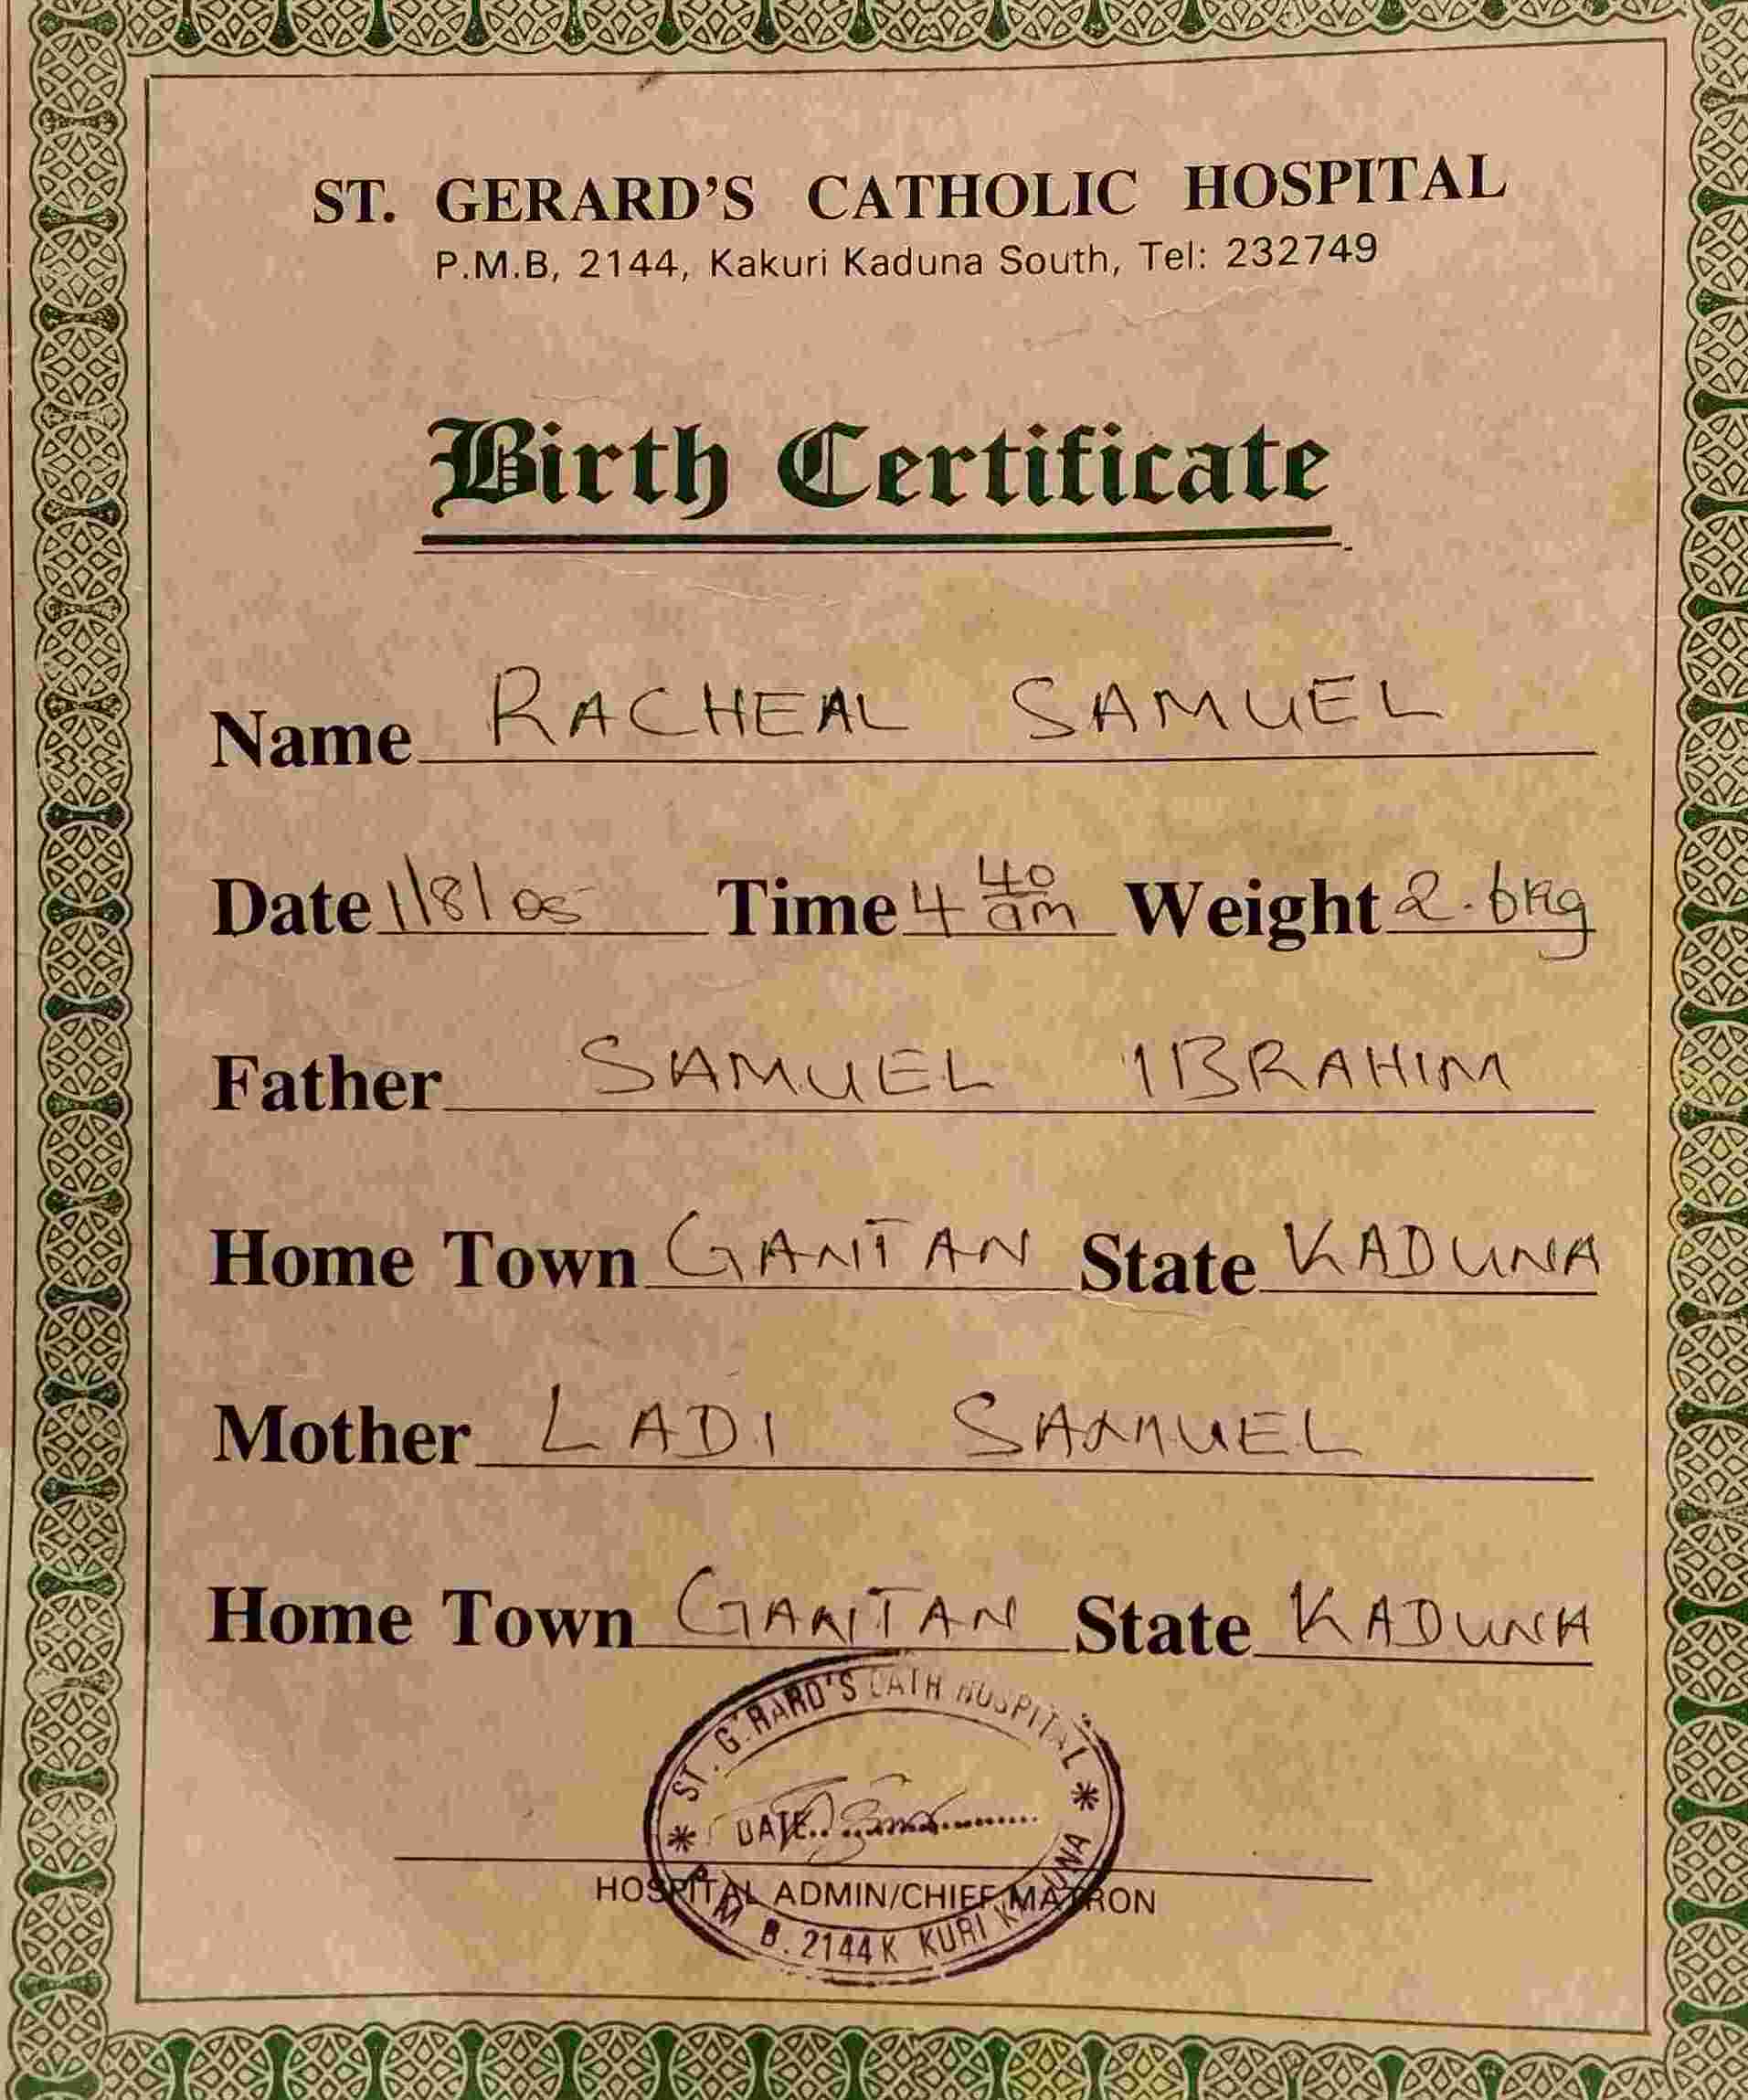 ST. GERARD'S CATHOLIC HOSPITAL
P.M.B, 2144, Kakuri Kaduna South, Tel: 232749
Birth Certificate
Name RACHEAL SAMUEL
Date 1/8/05 Time 4 40 am Weight 2.6kg
Father SAMUEL IBRAHIM
Home Town GANTAN State KADUNA
Mother LADI SAMUEL
Home Town GANTAN State KADUNA
ST. GERARD'S CATH HOSPITAL
DATE
HOSPITAL ADMIN/CHIEF MATRON
P.M B. 2144 KAKURI KADUNA